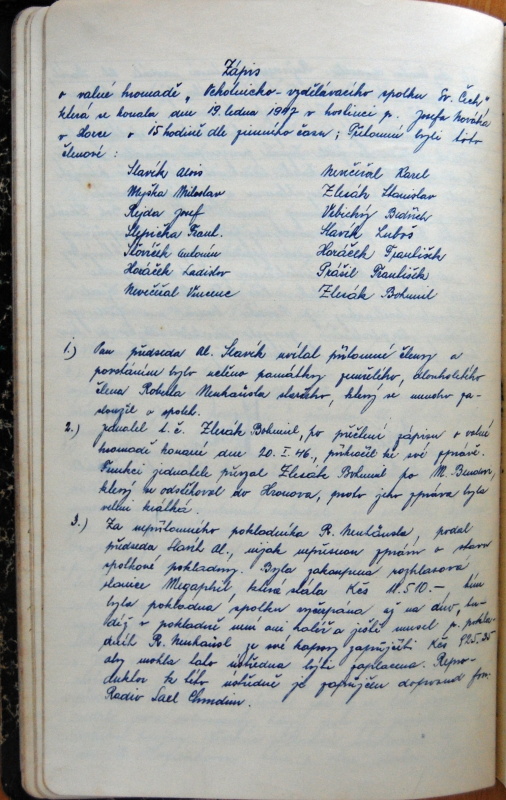 Zápis
o valné hromadě „Ochotnicko-vzdělávacího spolku Sv. Čech"
která se konala dne 19. ledna 1947 v hostinci p. Josefa Nováka
v o 15 hodině dle zimního času; Přítomni byli tito
členové:
Slavík Alois
Nevěčeřal Karel
Myška Miloslav
Zlesák Stanislav
Rejda Josef
Bedřich
Štěpička Frant.
Slavík Luboš
Antonín
Horáček František
Horáček Ladislav
Prášil František
Nevěčeřal Vincenc
Zlesák Bohumil
1.) Pan předseda Al. Slavík uvítal přítomné členy a
povstáním bylo uctěno památky zemřelého, dlouholetého
člena Roberta Neuhäusla staršího, který se mnoho za-
sloužil o spolek.
2.) Jednatel t. č. Zlesák Bohumil, po přečtení zápisu o valné
hromadě konané dne 20. I. 46., přikročil ke své zprávě.
Funkci jednatele převzal Zlesák Bohumil po M.
který se odstěhoval do Hronova, proto jeho zpráva byla
velmi krátká.
3.) Za nepřítomného pokladníka R. Neuhäusla, podal
předseda Slavík Al., nijak nepříznivou zprávu o stavu
spolkové pokladny. Byla zakoupena rozhlasová
stanice Megaphil, která stála Kčs 11.510.- tím
byla pokladna spolku vyčerpána až na dno, tu-
díž v pokladně není ani haléř a ještě musel p. pokla-
dník R. Neuhäusl ze své kapsy zapůjčiti Kčs 925.35
aby mohla tato ústředna býti zaplacena. Repro-
duktor k této ústředně je zapůjčen doposud firm.
Radio Sael Chrudim.